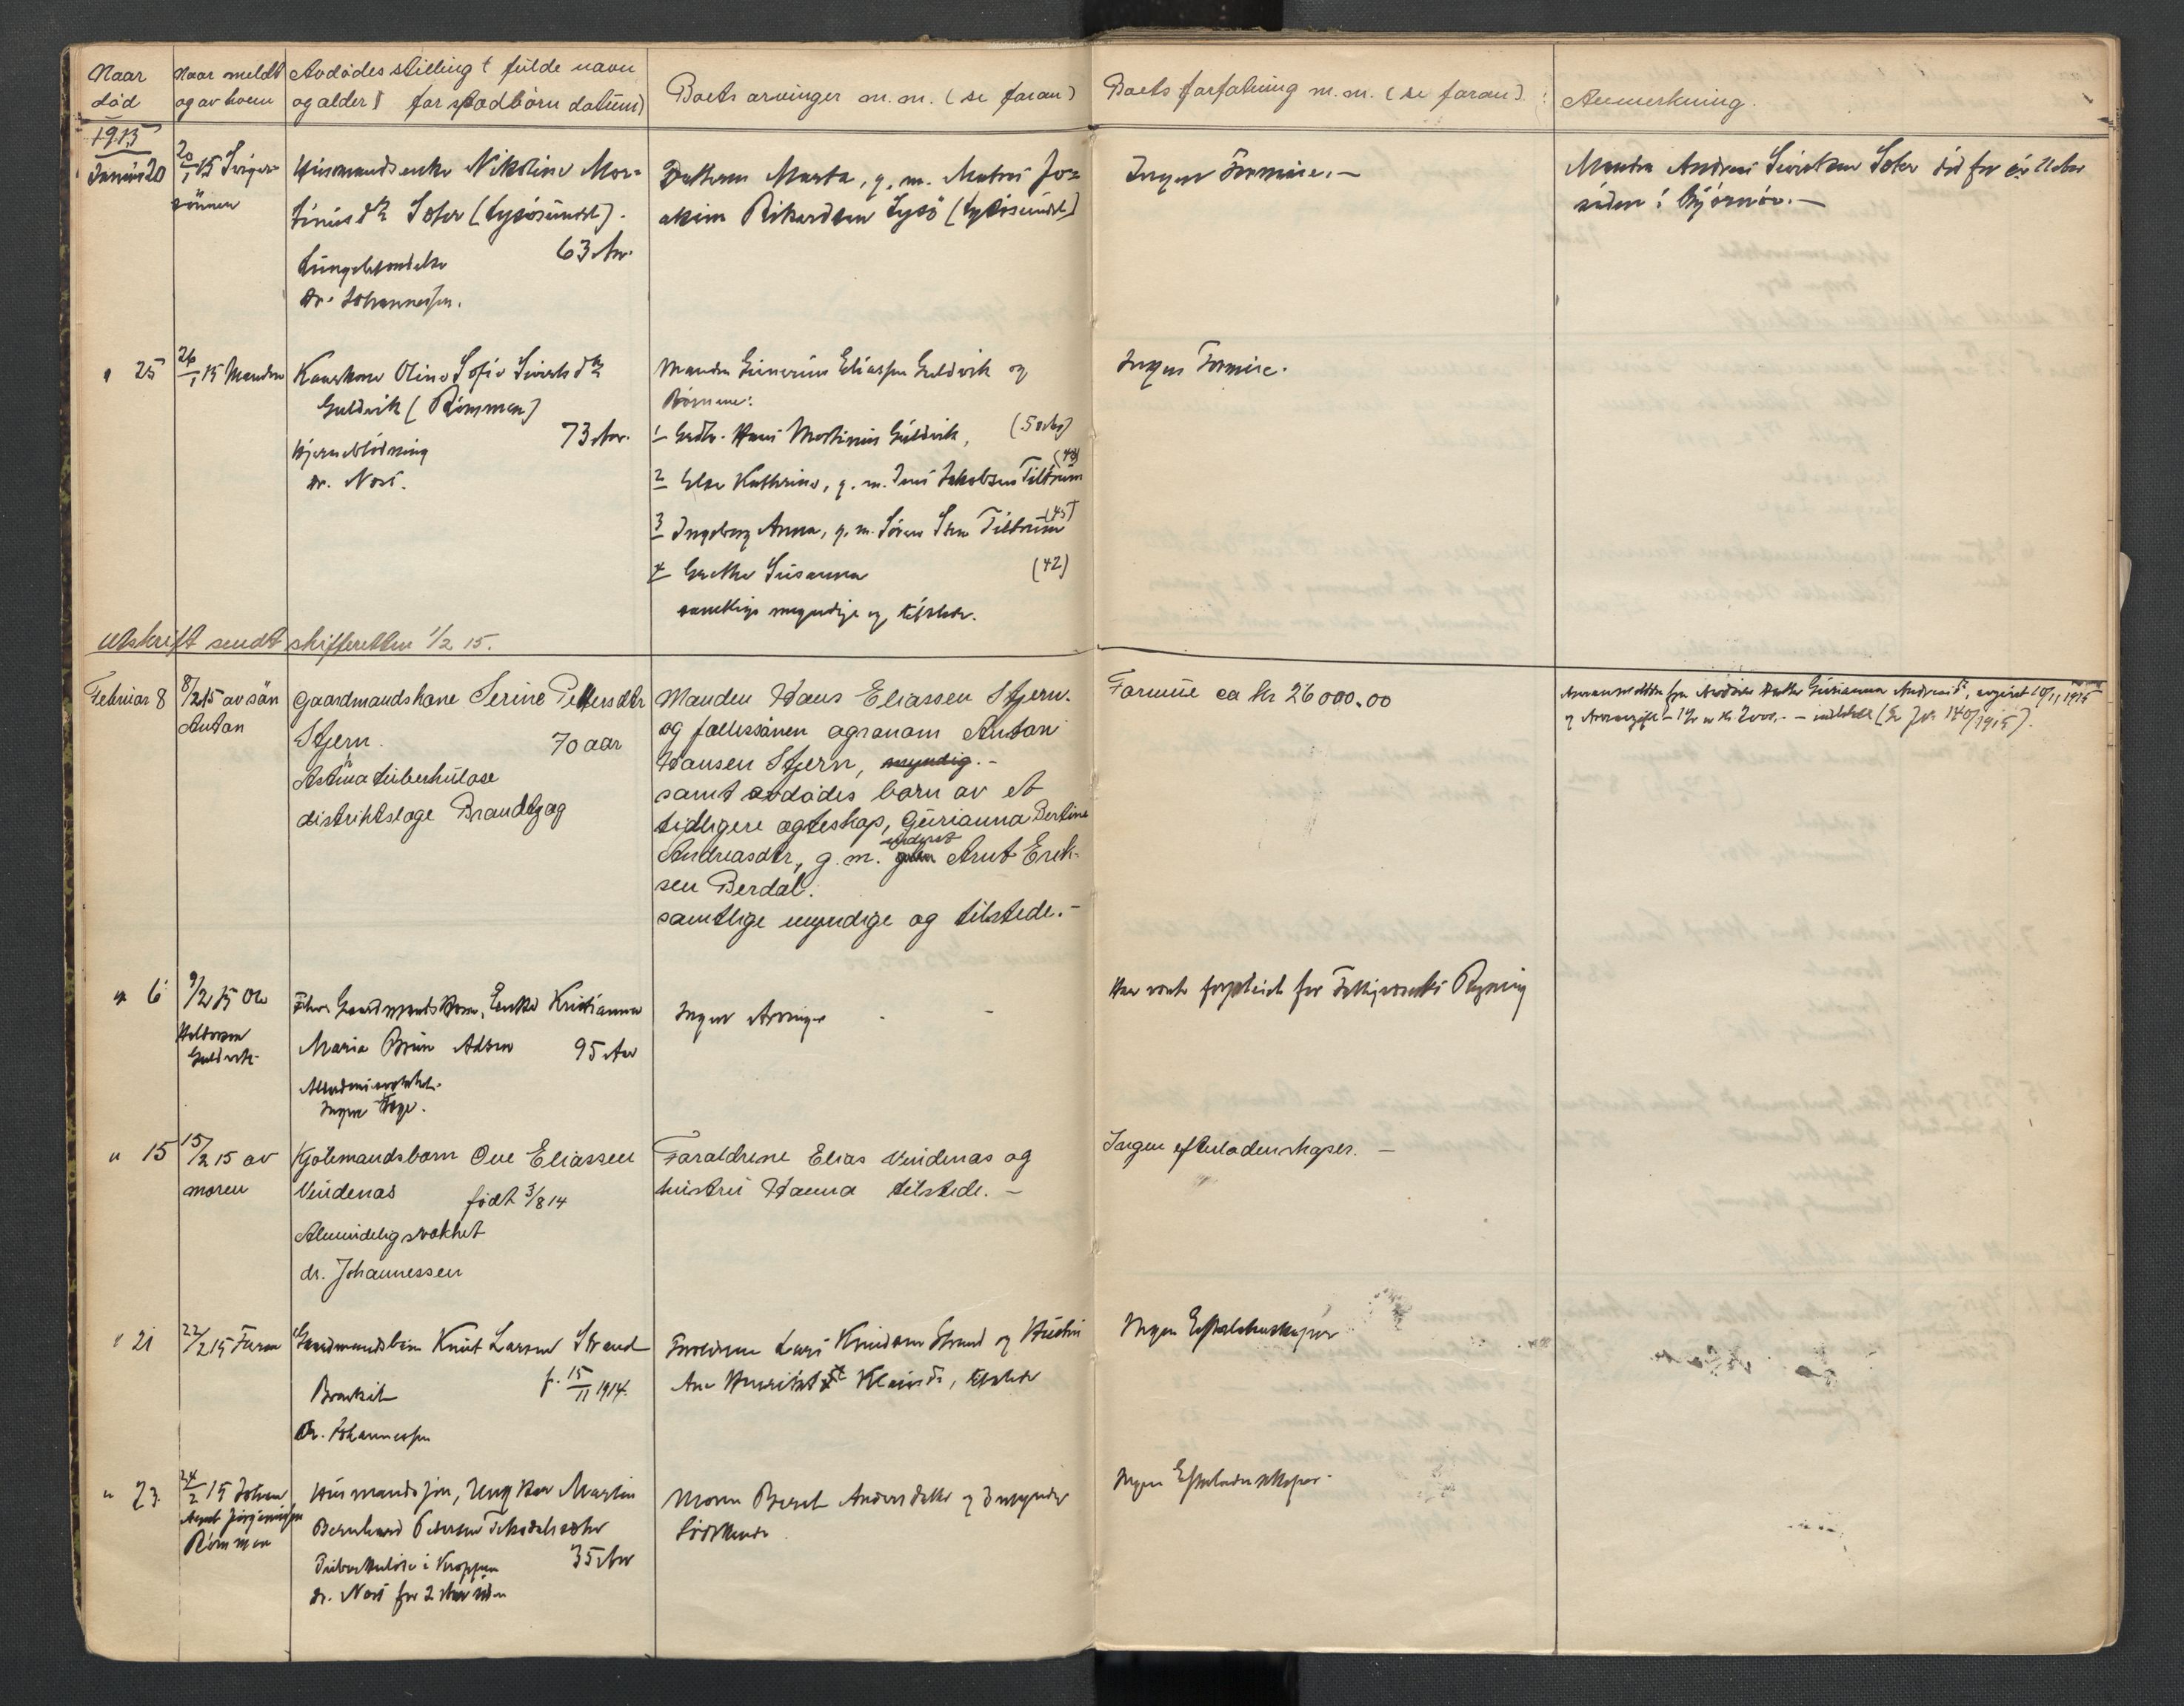 Naar død
Naar meldt og av hvem
Avdødes stilling, fulde navn og alder (for spædbørn datum)
Boets arvinger m.m. (se foran)
Boets forfatning m.m. (se foran)
Anmerkning.
1915
Januar 20
20/1 15 Svigersönnen
Husmandsenke Nikoline Mor-
tinusdtr Seter (Lysösundet).
63 Aar.
Lungebetændelse
Dr. Johannessen.
Datteren Marta, g. m. Matros Jo-
akim Rikardsen Lysö (Lysösundet)
Ingen Formue. —
Manden Andreas Sivertsen Seter död for
siden i Bjørnör. —
" 25
26/1 15 Manden
Kaarkone Oline Sofie Sivertsdtr
Guldvik (Römmen)
73 Aar.
Hjerneblödning
Dr. Nos.
Manden Gunerius Eliassen Guldvik og
Börnene:
1 Gdbr. Hans Mortinus Guldvik,
2 Else Kathrine, g. m. Jens Jakobsen Tiltrum
3 Ingeborg Anna, g. m. Sören Tiltrum (45)
4 Grethe Susanna (42)
samtlige myndige og tilstede.
Ingen Formue.
Utskrift sendt skifteretten 1/2 15.
Februar 8
8/2 15 av sön
Anton
Gaardmandskone Serine Pettersdtr
Stjern.
70 aar
Astma tuberkulose
distriktslæge Brandtzæg
Manden Hans Eliassen Stjern.
og fællessönnen agronom Anton
Hansen Stjern, myndig. -
samt avdødes barn av et
tidligere ægteskap, Gurianna Bertine
Andreasdtr, g. m. Arnt Erik-
sen Berdal.
samtlige myndige og tilstede. -
Formue ca kr 26000.00
" 6
9/2 15 Ole
Guldvik
Gaardmands Enke Kristianna
Maria Brun Adsen 95 Aar
Alderdomssvakhet.
Ingen Læge.
Ingen Arvinger
for Fattigvæsenets Regning
" 15
15/2 15 av
moren
Kjölemandsbarn Ove Eliassen
Vindenas født 3/8 14
Almindelig svakhet
dr. Johannessen
Foraldrene Elias Vindenas og
hustru Hanna tilstede. —
Ingen efterladenskaper. —
" 21
22/2 15 Faren
Gaardmandsbarn Knut Larsen Strand
f. 15/11 1914.
Bronkit
Dr. Johannessen
Foreldrene Lars Knudsen Strand og Hustru
tilstede
Ingen Efterladenskaper
" 23.
24/2 15 Johan
Arent Jörgensen
Römmen
Husmandssön, Ungkar Martin
Bernhard Petersen
35 Aar
Tuberkulose i Kroppen
Dr. Nos for 2 Aar siden
Moren Beret Andersdatter og 3 myndige
Södskende
Ingen Efterladenskaper.